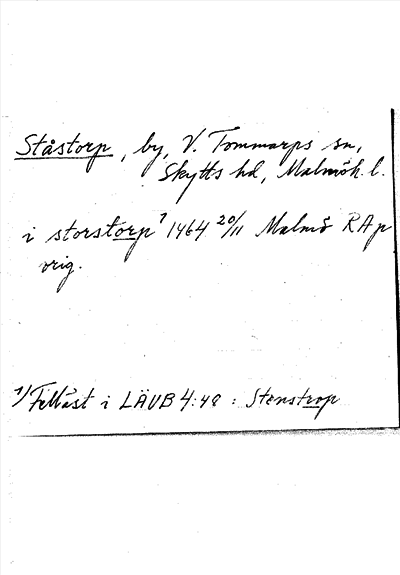 Ståstorp, by, V. Tommarps sn,
Skytts hd, Malmöh. l.
i storstorp¹ 1464 20/11 Malmö RAp
orig.
¹/ Felläst i LÄUB 4:48 : Stenstrop